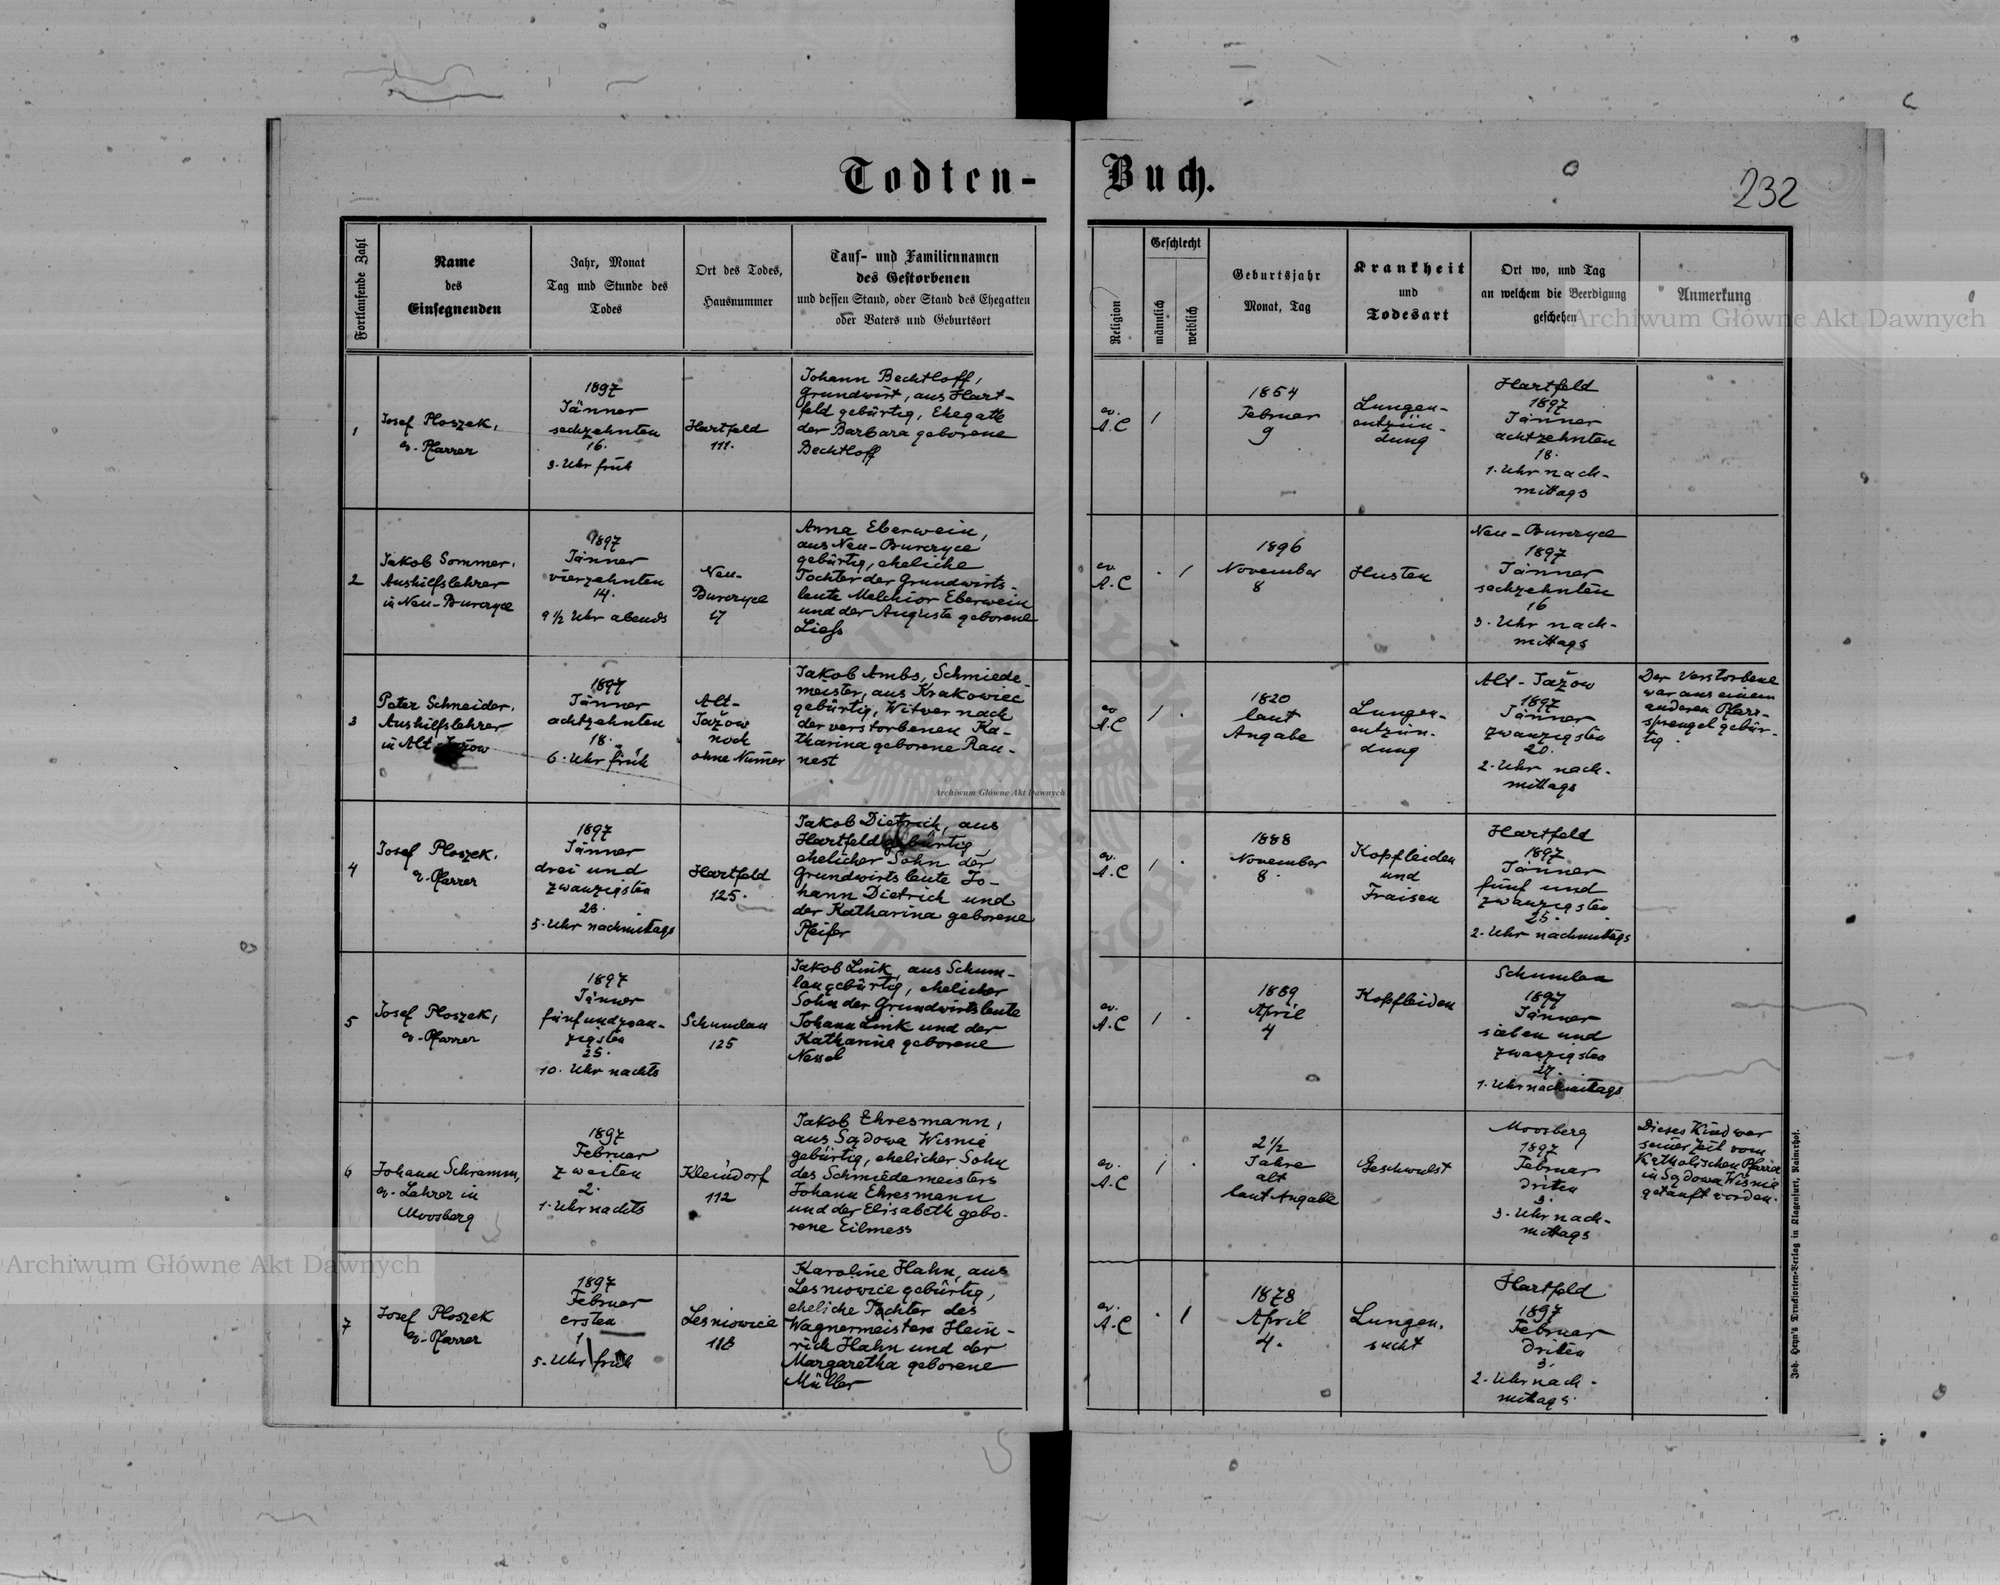 Todten-
Buch.
232
Fortlaufende Zahl
Name
des
Einsegnenden
Jahr, Monat
Tag und Stunde des
Todes
Ort des Todes,
Hausnummer
Tauf- und Familiennamen
des Gestorbenen
und dessen Stand, oder Stand des Ehegatten
oder Vaters und Geburtsort
Religion
Geschlecht
männlich
weiblich
Geburtsjahr
Monat, Tag
Krankheit
und
Todesart
Ort wo, und Tag
an welchem die Beerdigung
geschehen
Anmerkung
Archiwum Główne Akt Dawnych
1
Josef Ploszek,
ev. Pfarrer
1897
Jänner
sechzehnten
16.
3. Uhr früh
Hartfeld
111.
Johann Bechtloff,
Grundwirt, aus Hart-
feld gebürtig, Ehegatte
der Barbara geborene
Bechtloff
ev.
A.C
1
1854
Februar
9
Lungen-
entzün-
dung
Hartfeld
1897
Jänner
achtzehnten
18.
1. Uhr nach-
mittags
2
Jakob Sommer,
Aushilfslehrer
in Neu-Burczyce
1897
Jänner
vierzehnten
14.
9 1/2 Uhr abends
Neu-
Burczyce
17
Anna Eberwein,
aus Neu-Burczyce
gebürtig, eheliche
Tochter der Grundwirts-
leute Melchior Eberwein
und der Auguste geborene
Liefs
ev.
A.C
. 1
1896
November
8
Husten
Neu-Burczyce
1897
Jänner
sechzehnten
16
3. Uhr nach-
mittags
3
Peter Schneider,
Aushilfslehrer
in Alt-Jazow
1897
Jänner
achtzehnten
18.
6. Uhr früh
Alt-
Jažow
noch
ohne Numer
Jakob Ambs, Schmiede-
meister, aus Krakowiec
gebürtig, Witver nach
der verstorbenen Ka-
tharina geborene Rau-
nest
Archiwum Główne Akt Dawnych
ev
A.C
1 .
1820
laut
Angabe
Lungen-
entzün-
dung
Alt-Jažow
1897
Jänner
zwanzigsten
20.
2. Uhr nach-
mittags
Der Verstorbene
war aus einem
anderen Pfarr-
sprengel gebür-
tig.
4
Josef Ploszek,
ev. Pfarrer
1897
Jänner
drei und
zwanzigsten
23.
5. Uhr nachmittags
Hartfeld
125.
Jakob Dietrich, aus
Hartfeld gebürtig,
ehelicher Sohn der
Grundwirtsleute Jo-
hann Dietrich und
der Katharina geborene
Pfeifer
ev.
A.C
1 .
1888
November
8.
Kopfleiden
und
Fraisen
Hartfeld
1897
Jänner
fünf und
zwanzigsten
25.
2. Uhr nachmittags
5
Josef Ploszek,
ev. Pfarrer
1897
Jänner
fünfundzwan-
zigsten
25.
10. Uhr nachts
Schumlau
125
Jakob Link, aus Schum-
lau gebürtig, ehelicher
Sohn der Grundwirtsleute
Johann Link und der
Katharine geborene
Nessel
ev.
A.C
1 .
1889
April
4
Kopfleiden
Schumlau
1897
Jänner
sieben und
zwanzigsten
27.
1. Uhr nachmittags
6
Johann Schramm,
ev. Lehrer in
Moosberg
1897
Februar
zweiten
2.
1. Uhr nachts
Kleindorf
112
Jakob Ehresmann,
aus Sądowa Wisnia
gebürtig, ehelicher Sohn
des Schmiedemeisters
Johann Ehresmann
und der Elisabeth gebo-
rene Eilmess
ev.
A.C
1 .
2 1/2
Jahre
alt
laut Angabe
Geschwulst
Moosberg
1897
Februar
driten
3.
3. Uhr nach-
mittags
Dieses Kind war
seiner Zeit vom
Katholischen Pfarrer
in Sądowa Wisnia
getauft worden.
Archiwum Główne Akt Dawnych
7
Josef Ploszek
ev. Pfarrer
1897
Februar
ersten
1
5. Uhr früh
Lesniowice
118
Karoline Hahn, aus
Lesniowice gebürtig,
eheliche Tochter des
Wagnermeisters Hein-
rich Hahn und der
Margaretha geborene
Müller
ev.
A.C
. 1
1878
April
4.
Lungen-
sucht
Hartfeld
1897
Februar
driten
3.
2. Uhr nach-
mittags.
Joh. Heyn's Drucksorten-Verlag in Klagenfurt, Raimerhof.